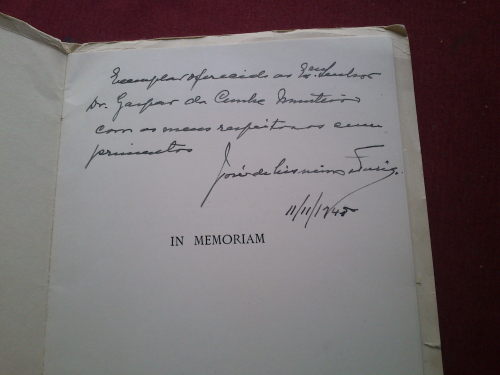 Exemplar oferecido ao Exmº Senhor
Dr. Gaspar da Cunha Monteiro
com os meus respeitosos cum
primentos
José de
11/11/1948
IN MEMORIAM